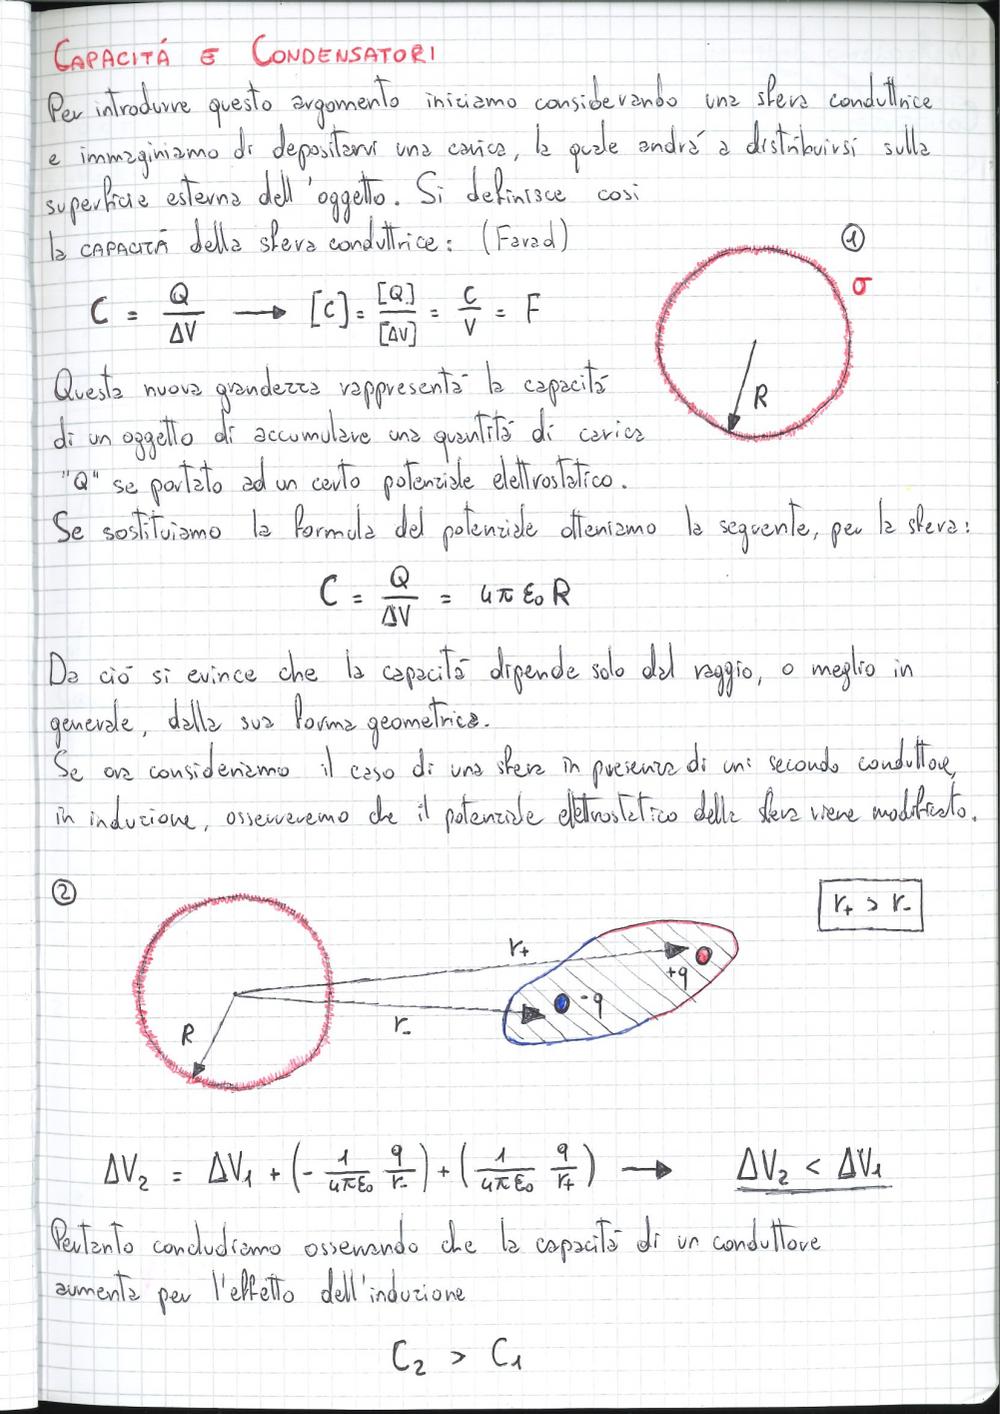 CAPACITÁ E CONDENSATORI
Per introdurre questo argomento iniziamo considerando una sfera conduttrice
e immaginiamo di depositarvi una carica, la quale andrá a distribuirsi sulla
superficie esterna dell'oggetto. Si definisce cosi
la CAPACITÁ della sfera conduttrice: (Farad)
①
σ
C = Q/ΔV → [C] = [Q]/[ΔV] = C/V = F
R
Questa nuova grandezza rappresenta la capacitá
di un oggetto di accumulare una quantitá di carica
"Q" se portato ad un certo potenziale elettrostatico.
Se sostituiamo la formula del potenziale otteniamo la seguente, per la sfera:
C = Q/ΔV = 4π ε₀ R
Da ció si evince che la capacitá dipende solo dal raggio, o meglio in
generale, dalla sua forma geometrica.
Se ora consideriamo il caso di una sfera in presenza di un secondo conduttore,
in induzione, osserveremo che il potenziale elettrostatico della sfera viene modificato.
②
r₊ > r₋
r₊
+q
-q
r₋
R
ΔV₂ = ΔV₁ + (- 1/4πε₀ q/r₋) + (1/4πε₀ q/r₊) → ΔV₂ < ΔV₁
Pertanto concludiamo osservando che la capacitá di un conduttore
aumenta per l'effetto dell'induzione
C₂ > C₁